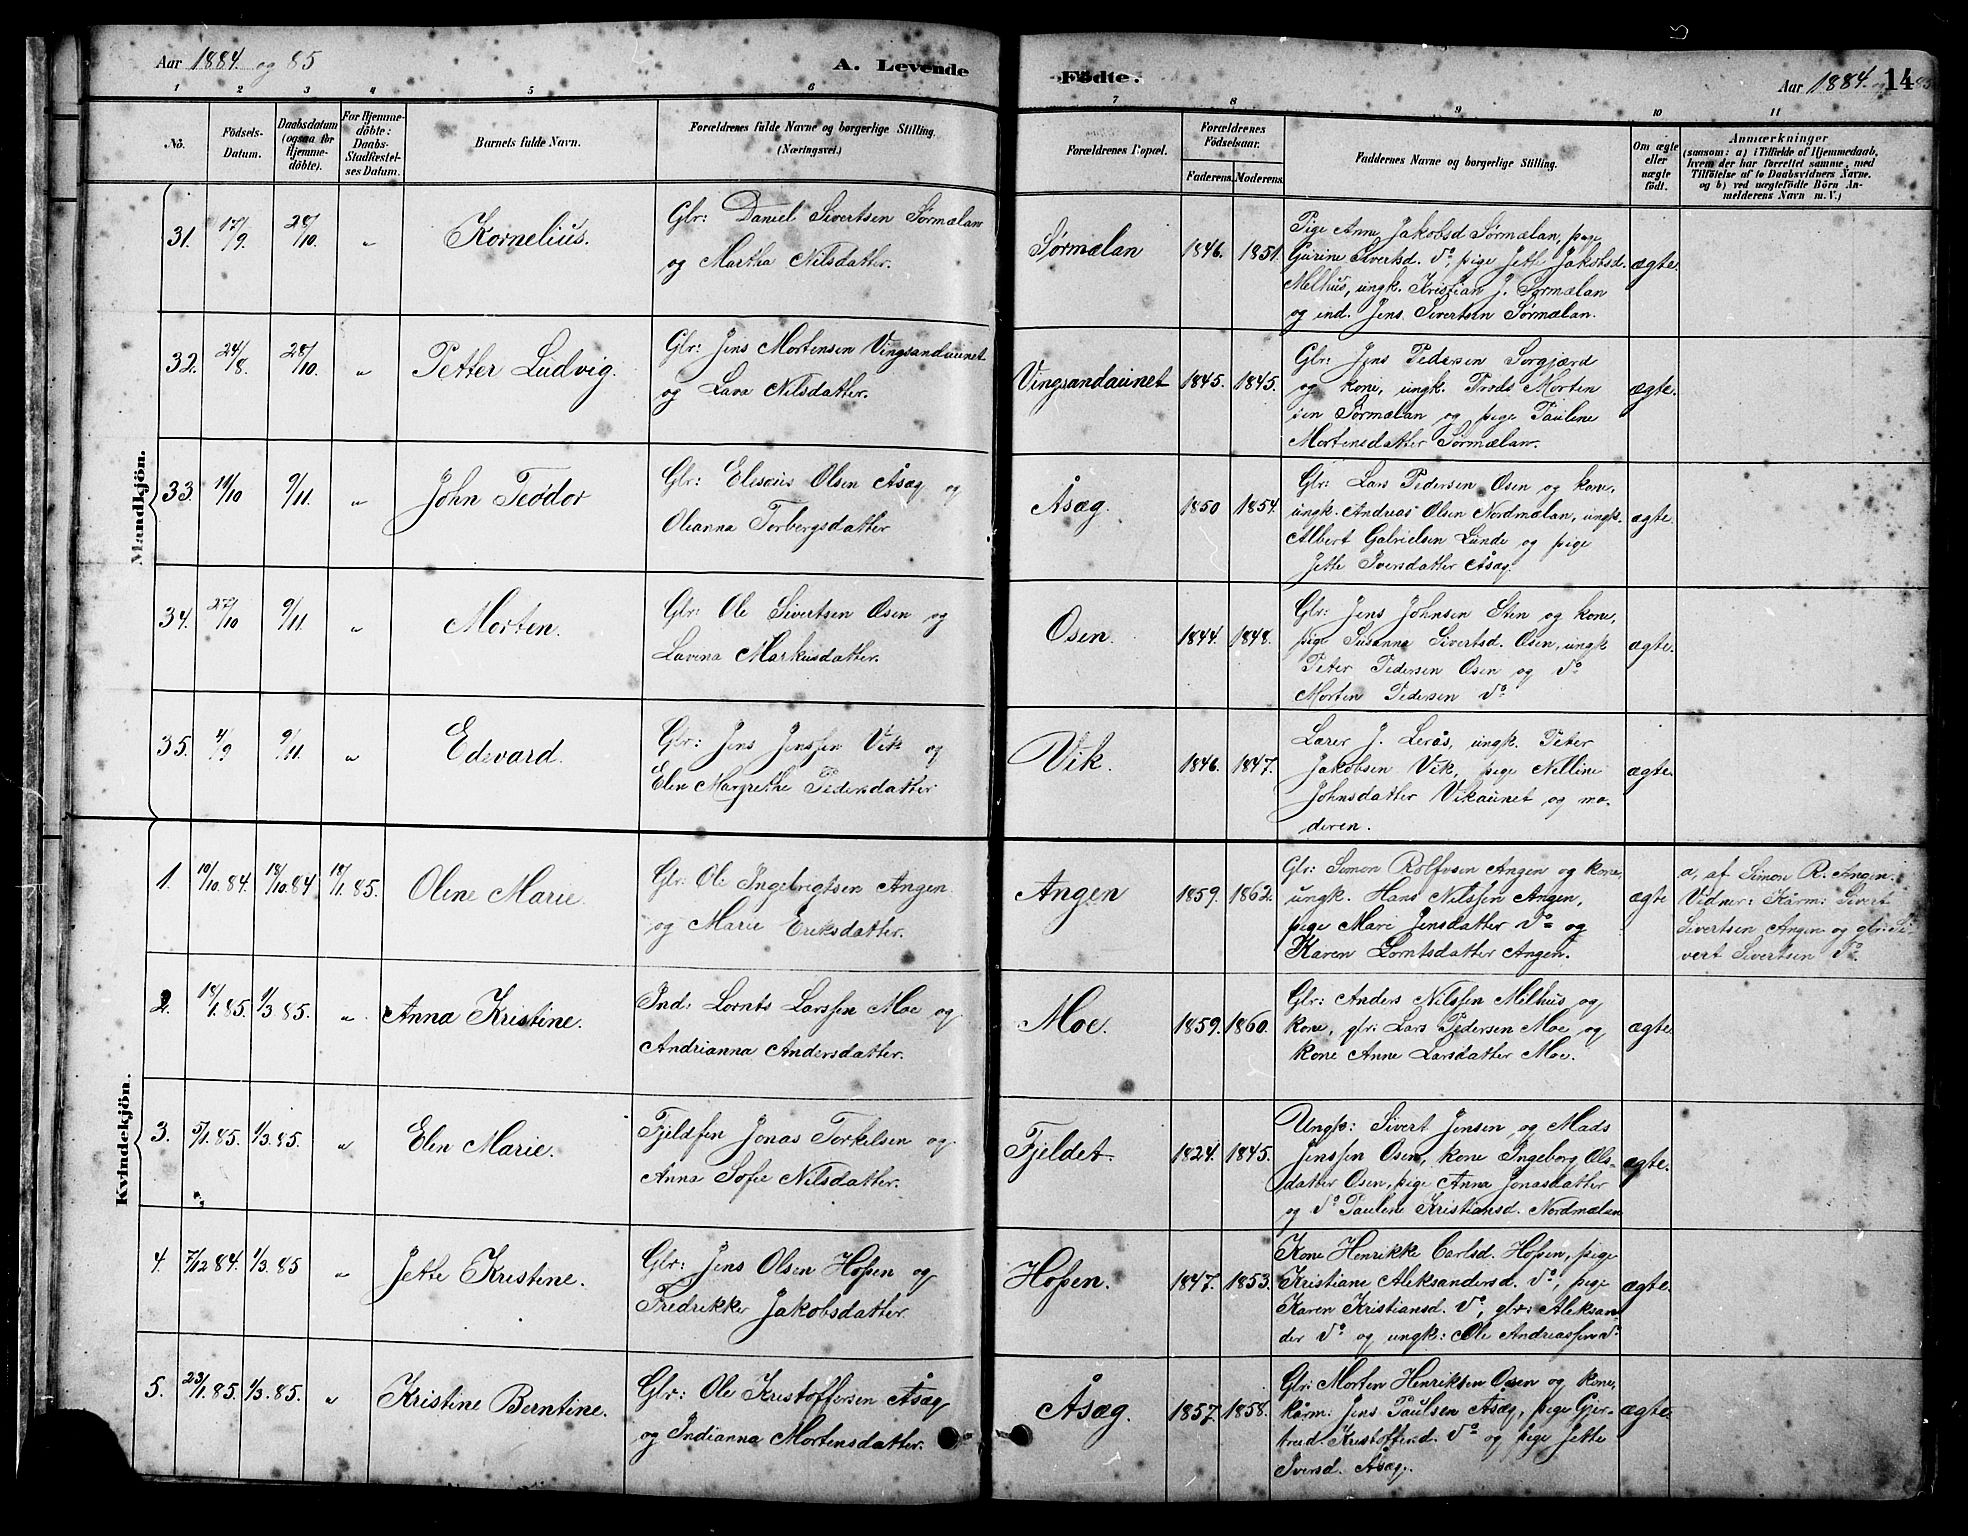 Aar 1884 og 85
A. Levende
Födte.
Aar 1884 og 85
14
1 2 3 4 5 6 7 8 9 10 11
No.
Födsels-
Datum.
Daabsdatum
(ogsaa for
Hjemme-
döbte).
For Hjemme-
döbte:
Daabs-
Stadfæstel-
ses Datum.
Barnets fulde Navn.
Forældrenes fulde Navne og borgerlige Stilling.
(Næringsvei.)
Forældrenes Bopæl.
Forældrenes
Födselsaar.
Faderens. Moderens.
Faddernes Navne og borgerlige Stilling.
Om ægte
eller
uægte
födt.
Anmærkninger
(saasom: a) i Tilfælde af Hjemmedaab,
hvem der har forrettet samme, med
Tilföielse af to Daabsvidners Navne.
og b) ved uægtefödte Börn An-
melderens Navn m. V.)
Mandkjön.
31. 17/9 26/10 "
Kornelius.
Glr: Daniel Sivertsen Sørmælan
og Martha Nilsdatter.
Sørmælan 1846. 1851.
Pige Anne Jakobsd Sørmælan, pige
Gurine Sivertsd. do, pige Jette Jakobsd.
Melhus, ungk. Kristian J. Sørmælan
og ind. Jens Sivertsen Sørmælan.
ægte.
32. 24/8. 26/10. "
Petter Ludvig.
Glr: Jens Mortensen Vingsandaunet
og Lava Nilsdatter.
Vingsandaunet 1845. 1845.
Glr: Jens Pedersen Sorgjærd
og kone, ungk. Trods Morten
sen Sørmælan og pige Pauline
Mortensdatter Sørmælan.
ægte.
33. 10/10 9/11. "
John Teodor
Glr: Eliseus Olsen Åsæg og
Oleanna Torbergsdatter
Åsæg. 1850 1854.
Glr: Lars Pedersen Osen og kone,
ungk. Andreas Olsen Nordmælan, ungk.
Albert Gabrielsen Lunde og pige
Jette Iversdatter Åsæg.
ægte.
34. 27/10 9/11. "
Morten.
Glr: Ole Sivertsen Osen og
Lavina Markusdatter.
Osen. 1844. 1848.
Glr: Jens Johnsen Sten og kone,
pige Susanna Sivertsd. Osen, ungk
Peter Pedersen Osen og do
Morten Pedersen do
ægte.
35. 4/9 9/11. "
Edevard.
Glr: Jens Jenssen Vik og
Elen Margrethe Pedersdatter
Vik. 1846. 1847.
Lærer J. Lerås, ungk. Peter
Jakobsen Vik, pige Nelline
Johnsdatter Vikaunet og mo-
deren.
ægte.
Kvindekjön.
1. 10/10.84. 18/10.84 18/1.85.
Oline Marie.
Glr: Ole Ingebrigtsen Angen
og Marie Eriksdatter.
Angen 1859. 1862.
Glr: Simon Rolfvsen Angen og kone,
ungk. Hans Nilssen Angen,
pige Mari Jensdatter do og
Karen Lorntsdatter Angen.
ægte
a, af Simon R. Angen.
Vidner: Kårm: Sivert
Sivertsen Angen og glr: Si
vert Sivertsen do.
2. 18/1.85. 1/3 85. "
Anna Kristine.
Ind: Lornts Larssen Moe og
Andrianna Andersdatter.
Moe. 1859. 1860.
Glr: Anders Nilssen Milhus og
kone, glr: Lars Pedersen Moe og
kone Anne Larsdatter Moe.
ægte
3. 5/1.85. 1/3.85. "
Elen Marie.
Fjeldfin Jonas Torkelsen og
Anna Sofie Nilsdatter.
Fjeldet. 1824. 1845.
Ungk: Sivert Jensen og Mads
Jenssen Osen, kone Ingeborg Ols-
datter Osen, pige Anna Jonasdatter
og do Pauline Kristiansd. Nordmælan
ægte.
4. 7/12 84. 1/3. 85 "
Jette Kristine.
Glr: Jens Olsen Hopen og
Fredrikke Jakobsdatter.
Hopen. 1847. 1853.
Kone Henrikke Carlsd. Hopen, pige
Kristiane Aleksandersd. do, pige
Karen Kristiansd. do, glr: Aleksan-
der do og ungk: Ole Andreassen do
ægte.
5. 23/1.85. 1/3.85. "
Kristine Berntine.
Glr: Ole Kristoffersen Åsæg
og Indianna Mortensdatter.
Åsæg. 1857. 1858.
Glr: Morten Henriksen Osen og kone,
kårm: Jens Paulsen Åsæg, pige Gjer-
trud Kristoffersd. do og pige Jette
Iversd. Åsæg.
ægte.